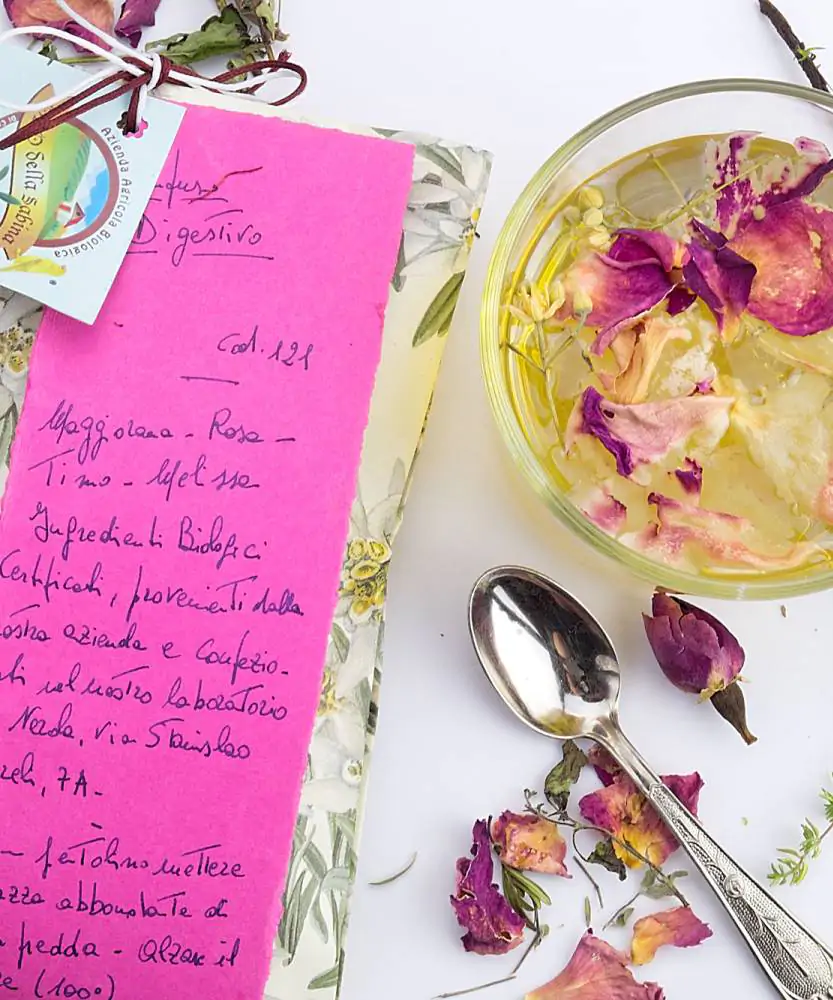 della Sabina
Azienda Agricola Biologica
Digestivo
Cod. 121
Maggiorana - Rosa -
Timo - Melissa
Ingredienti Biologici
Certificati, provenienti dalla
nostra azienda e confezio-
nel nostro laboratorio
Stanislao
7A -
pentolino mettere
abbondante di
fredda - alzare il
(100°)